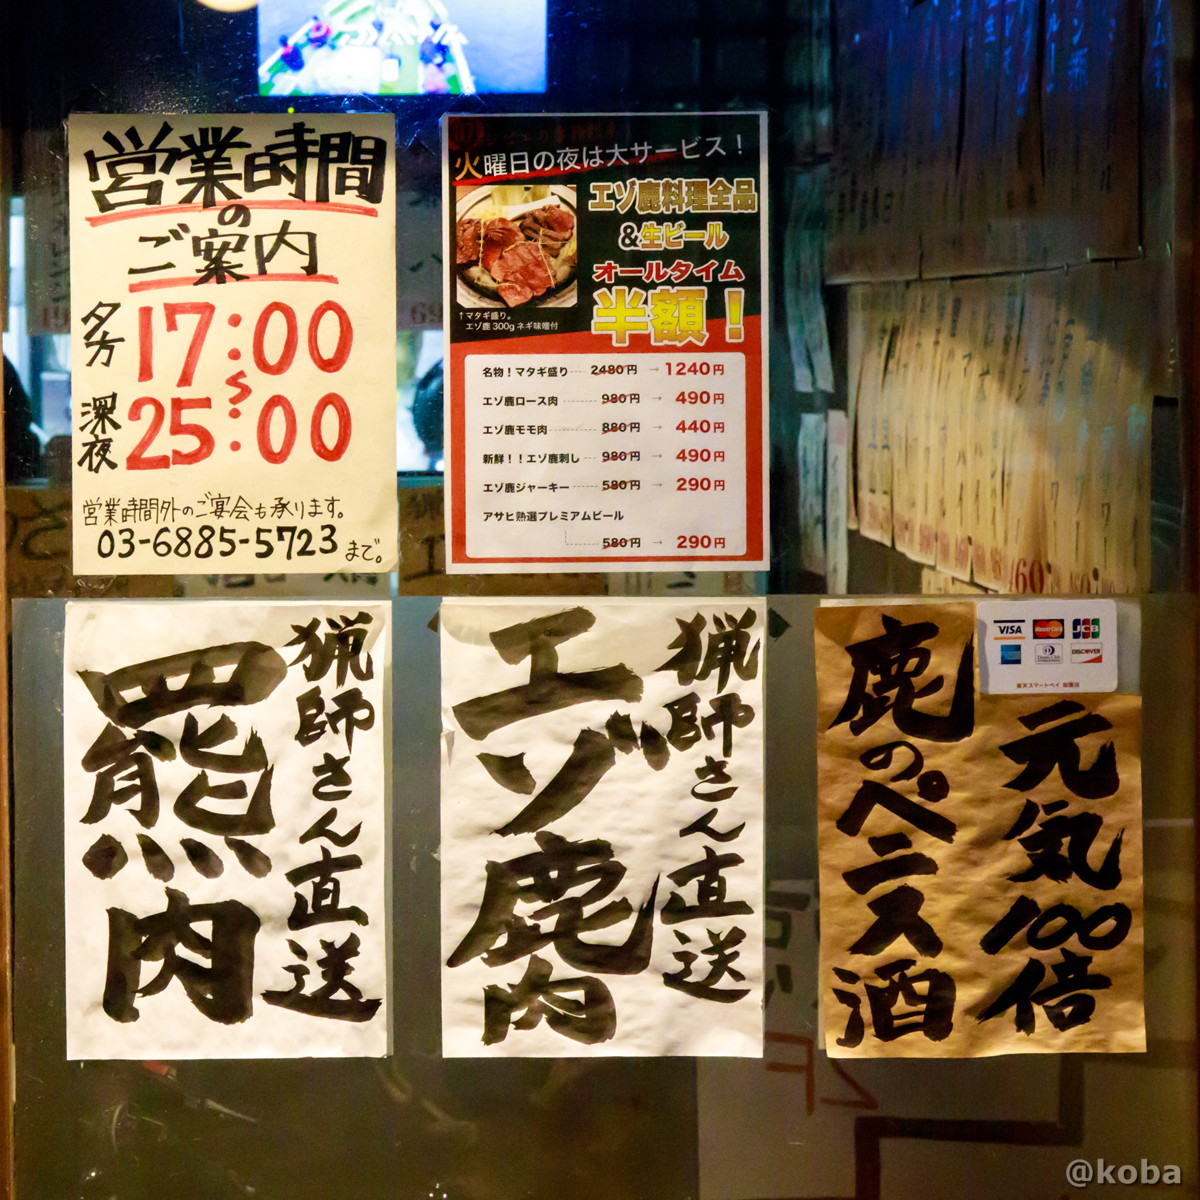 営業時間
の
ご案内
夕方 17:00
〜
深夜 25:00
営業時間外のご宴会も承ります。
03-6885-5723まで。
火曜日の夜は大サービス！
エゾ鹿料理全品
&生ビール
オールタイム
半額！
↑マタギ盛り。
エゾ鹿300gネギ味噌付
名物！マタギ盛り 2480円 → 1240円
エゾ鹿ロース肉 980円 → 490円
エゾ鹿モモ肉 880円 → 440円
新鮮！！エゾ鹿刺し 980円 → 490円
エゾ鹿ジャーキー 580円 → 290円
アサヒ熟選プレミアムビール
580円 → 290円
猟師さん直送
熊肉
猟師さん直送
エゾ鹿肉
VISA MasterCard JCB
DISCOVER
楽天スマートペイ 加盟店
元気100倍
鹿のペニス酒
@koba